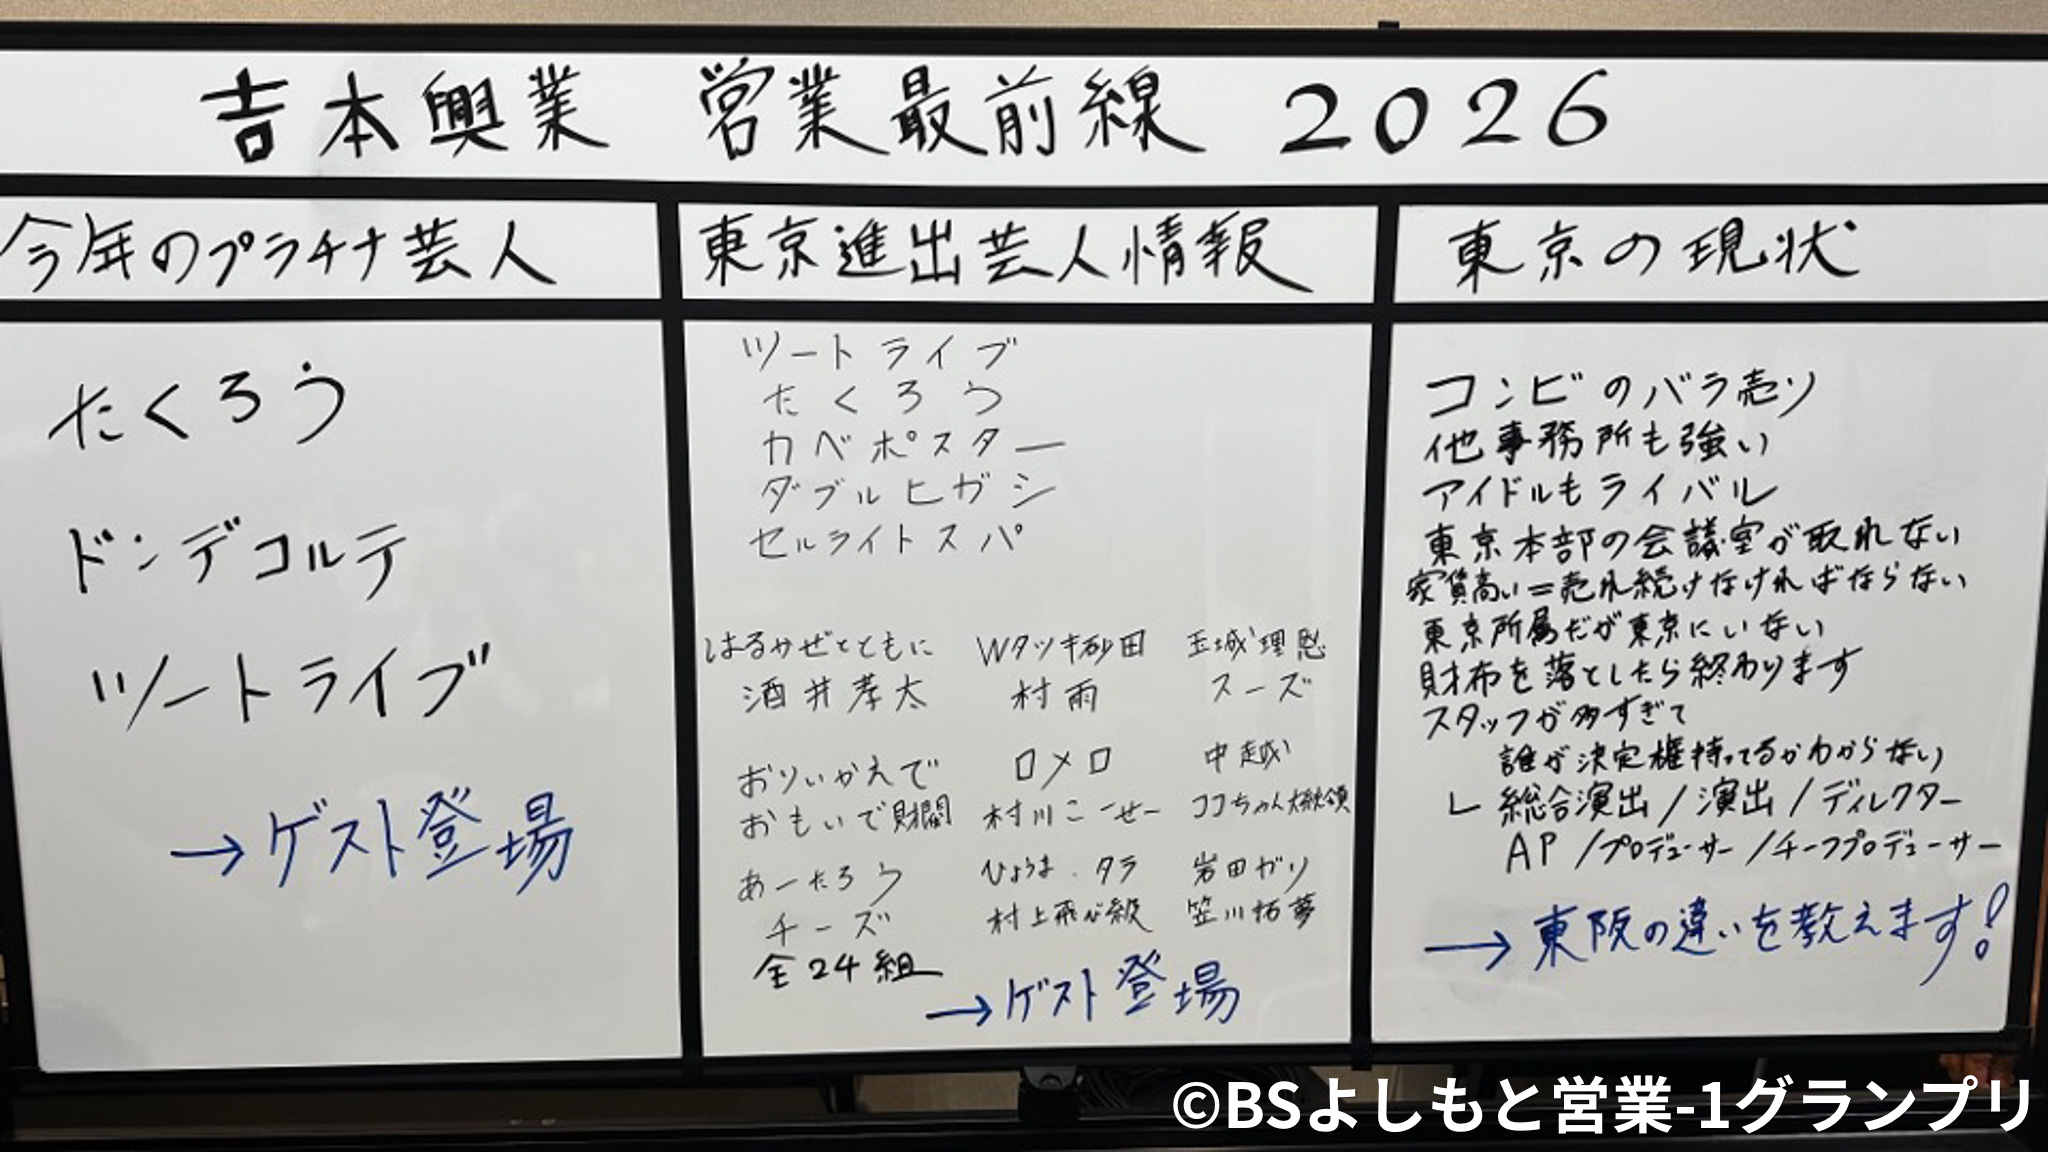 吉本興業 営業最前線 2026
今年のプラチナ芸人
たくろう
ドンデコルテ
ツートライブ
→ゲスト登場
東京進出芸人情報
ツートライブ
たくろう
カベポスター
ダブルヒガシ
セルライトスパ
はるかぜとともに Wタツキ砂田 玉城理恩
酒井孝太 村雨 スーズ
おりいかえで ロメロ 中越
おもいで財閣 村川こーせー ココちゃん大統領
あーたろう ひょうま.タラ 岩田ガリ
チーズ 村上飛び級 笠川拓夢
全24組
→ゲスト登場
東京の現状
コンビのバラ売り
他事務所も強い
アイドルもライバル
東京本部の会議室が取れない
家賃高い=売れ続けなければならない
東京所属だが東京にいない
財布を落としたら終わります
スタッフが多すぎて
誰が決定権持ってるかわからない
∟ 総合演出/演出/ディレクター
AP/プロデューサー/チーフプロデューサー
→東阪の違いを教えます!
©BSよしもと営業-1グランプリ